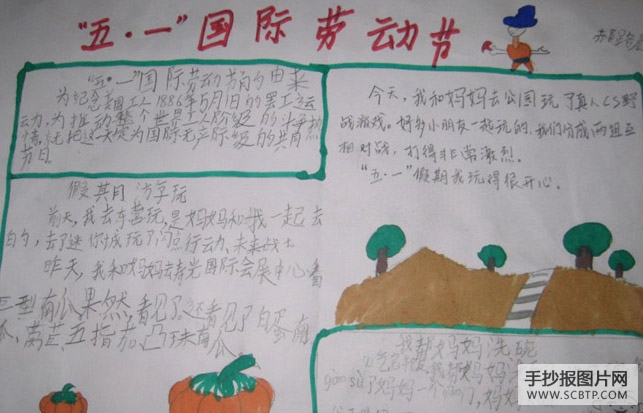 "五·一"国际劳动节
"五·一"国际劳动节的由来
为纪念美工人1886年5月1日的罢工运
动,为推动整个世界工人阶级的斗争
情,把这天定为国际无产阶级的共同
节日。
假其月 游玩
前天,我去东营玩,是妈妈和我一起去
白勺,去了迷你城,玩了 行动、未来战士
昨天,我和妈妈去寿光国际会展中心看
巨型南瓜,果然,看见了,还看见了白蛋南
瓜,莴苣、五指茄、
今天,我和妈妈去公园玩了真人CS野
战游戏。好多小朋友一起玩的,我们分成两组互
相对战,打得非常激烈。
"五·一"假期我玩得很开心。
我帮妈妈洗碗
我帮妈妈
gǎn 了妈妈一个 妈妈
手抄报图片网
WWW.SCBTP.COM